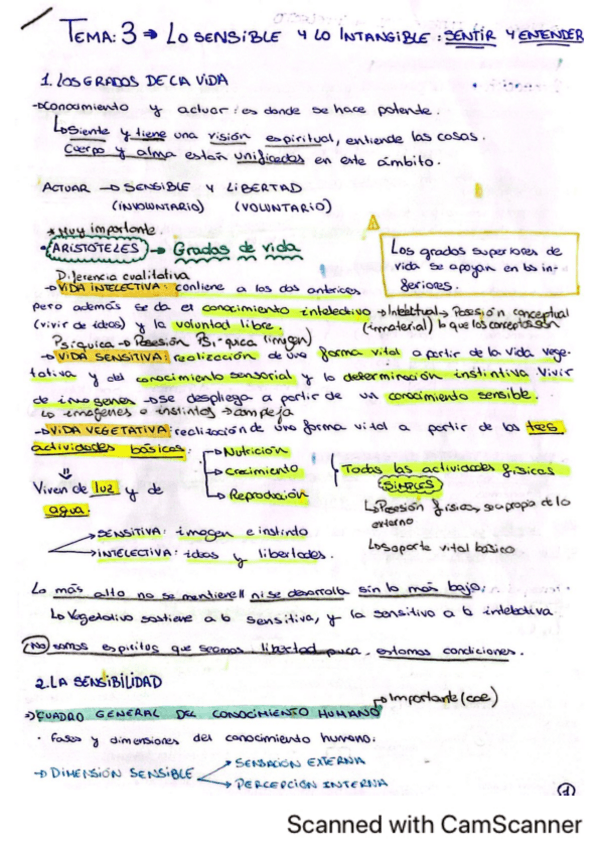 TEMA: 3 → LO SENSIBLE Y LO INTANGIBLE: SENTIR Y ENTENDER
1. LOS GRADOS DE LA VIDA
→ Conocimiento y actuar: es donde se hace potente.
↳ Siente y tiene una visión espiritual, entiende las cosas.
Cuerpo y alma están unificados en este ámbito.
ACTUAR → SENSIBLE Y LIBERTAD
(INVOLUNTARIO) (VOLUNTARIO)
* Muy importante
• ARISTOTELES → Grados de vida
Los grados superiores de
vida se apoyan en los in-
feriores.
Diferencia cualitativa
→ VIDA INTELECTIVA: contiene a las dos anteriores
pero además se da el conocimiento intelectivo → Intelectual → Posesión conceptual
(vivir de ideas) y la voluntad libre. (inmaterial) lo que los conceptos son
Psíquica → Posesión Psíquica (imagen)
→ VIDA SENSITIVA: realización de una forma vital a partir de la vida vege-
tativa y del conocimiento sensorial y la determinación instintiva. Vivir
de imagenes → se despliega a partir de un conocimiento sensible.
↳ imagenes o instintos → compleja
→ VIDA VEGETATIVA: realización de una forma vital a partir de las tres
actividades básicas: → Nutrición
→ Crecimiento
→ Reproducción
Todas las actividades físicas
SIMPLES
↳ Posesión física, se apropia de lo
externo
↳ Soporte vital básico
⇓
Viven de luz y de
agua.
→ SENSITIVA: imagen e instinto
→ INTELECTIVA: ideas y libertades.
Lo más alto no se mantiene ni se desarrolla sin lo más bajo.
↳ Vegetativo sostiene a lo sensitiva, y la sensitivo a lo intelectiva.
No somos espiritus que seamos libertad pura, estamos condiciones.
2. LA SENSIBILIDAD
→ Importante (cae)
⇒ CUADRO GENERAL DEL CONOCIMIENTO HUMANO
• Fases y dimensiones del conocimiento humano:
→ DIMENSIÓN SENSIBLE → SENSACIÓN EXTERNA
→ PERCEPCIÓN INTERNA
1
Scanned with CamScanner